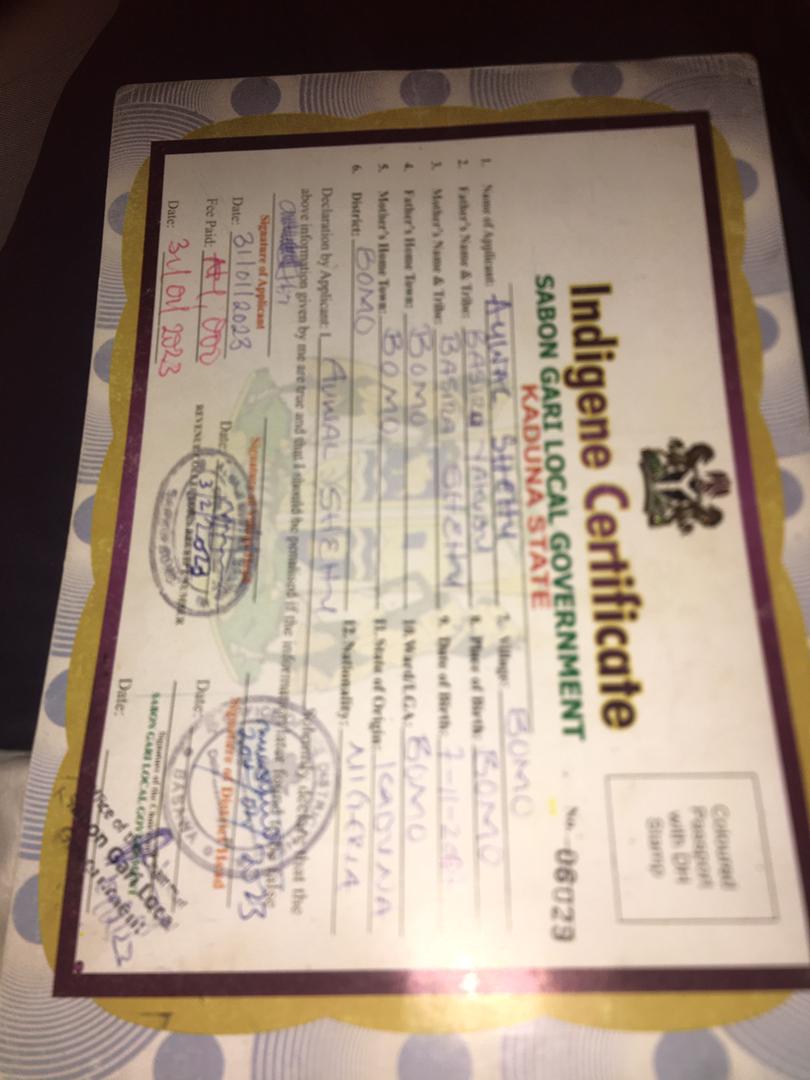 Indigene Certificate
SABON GARI LOCAL GOVERNMENT
KADUNA STATE
Coloured
Passport
with DH
Stamp
No. 06029
1. Name of Applicant: AUWAL SHEHU
2. Father's Name & Tribe:
3. Mother's Name & Tribe: BASIRA SHEHU
4. Father's Home Town: BOMO
5. Mother's Home Town: BOMO
6. District: BOMO
7. Village: BOMO
8. Place of Birth: BOMO
9. Date of Birth: 7-11-
10. Ward/LGA: BOMO
11. State of Origin: KADUNA
12. Nationality: NIGERIA
Declaration by Applicant: I, AUWAL SHEHU Solemnly declare that the
above information given by me are true and that I should be penalised if the information is later found to be false
Signature of Applicant
Date: 31/01/2023
Fee Paid: ₦1,000
Date: 31/01/2023
Date:
REVENUE
Signature of District Head
Date:
BASAWA
Signature of the
SABON GARI LOCAL GOV
Date:
Sabon Gari Local